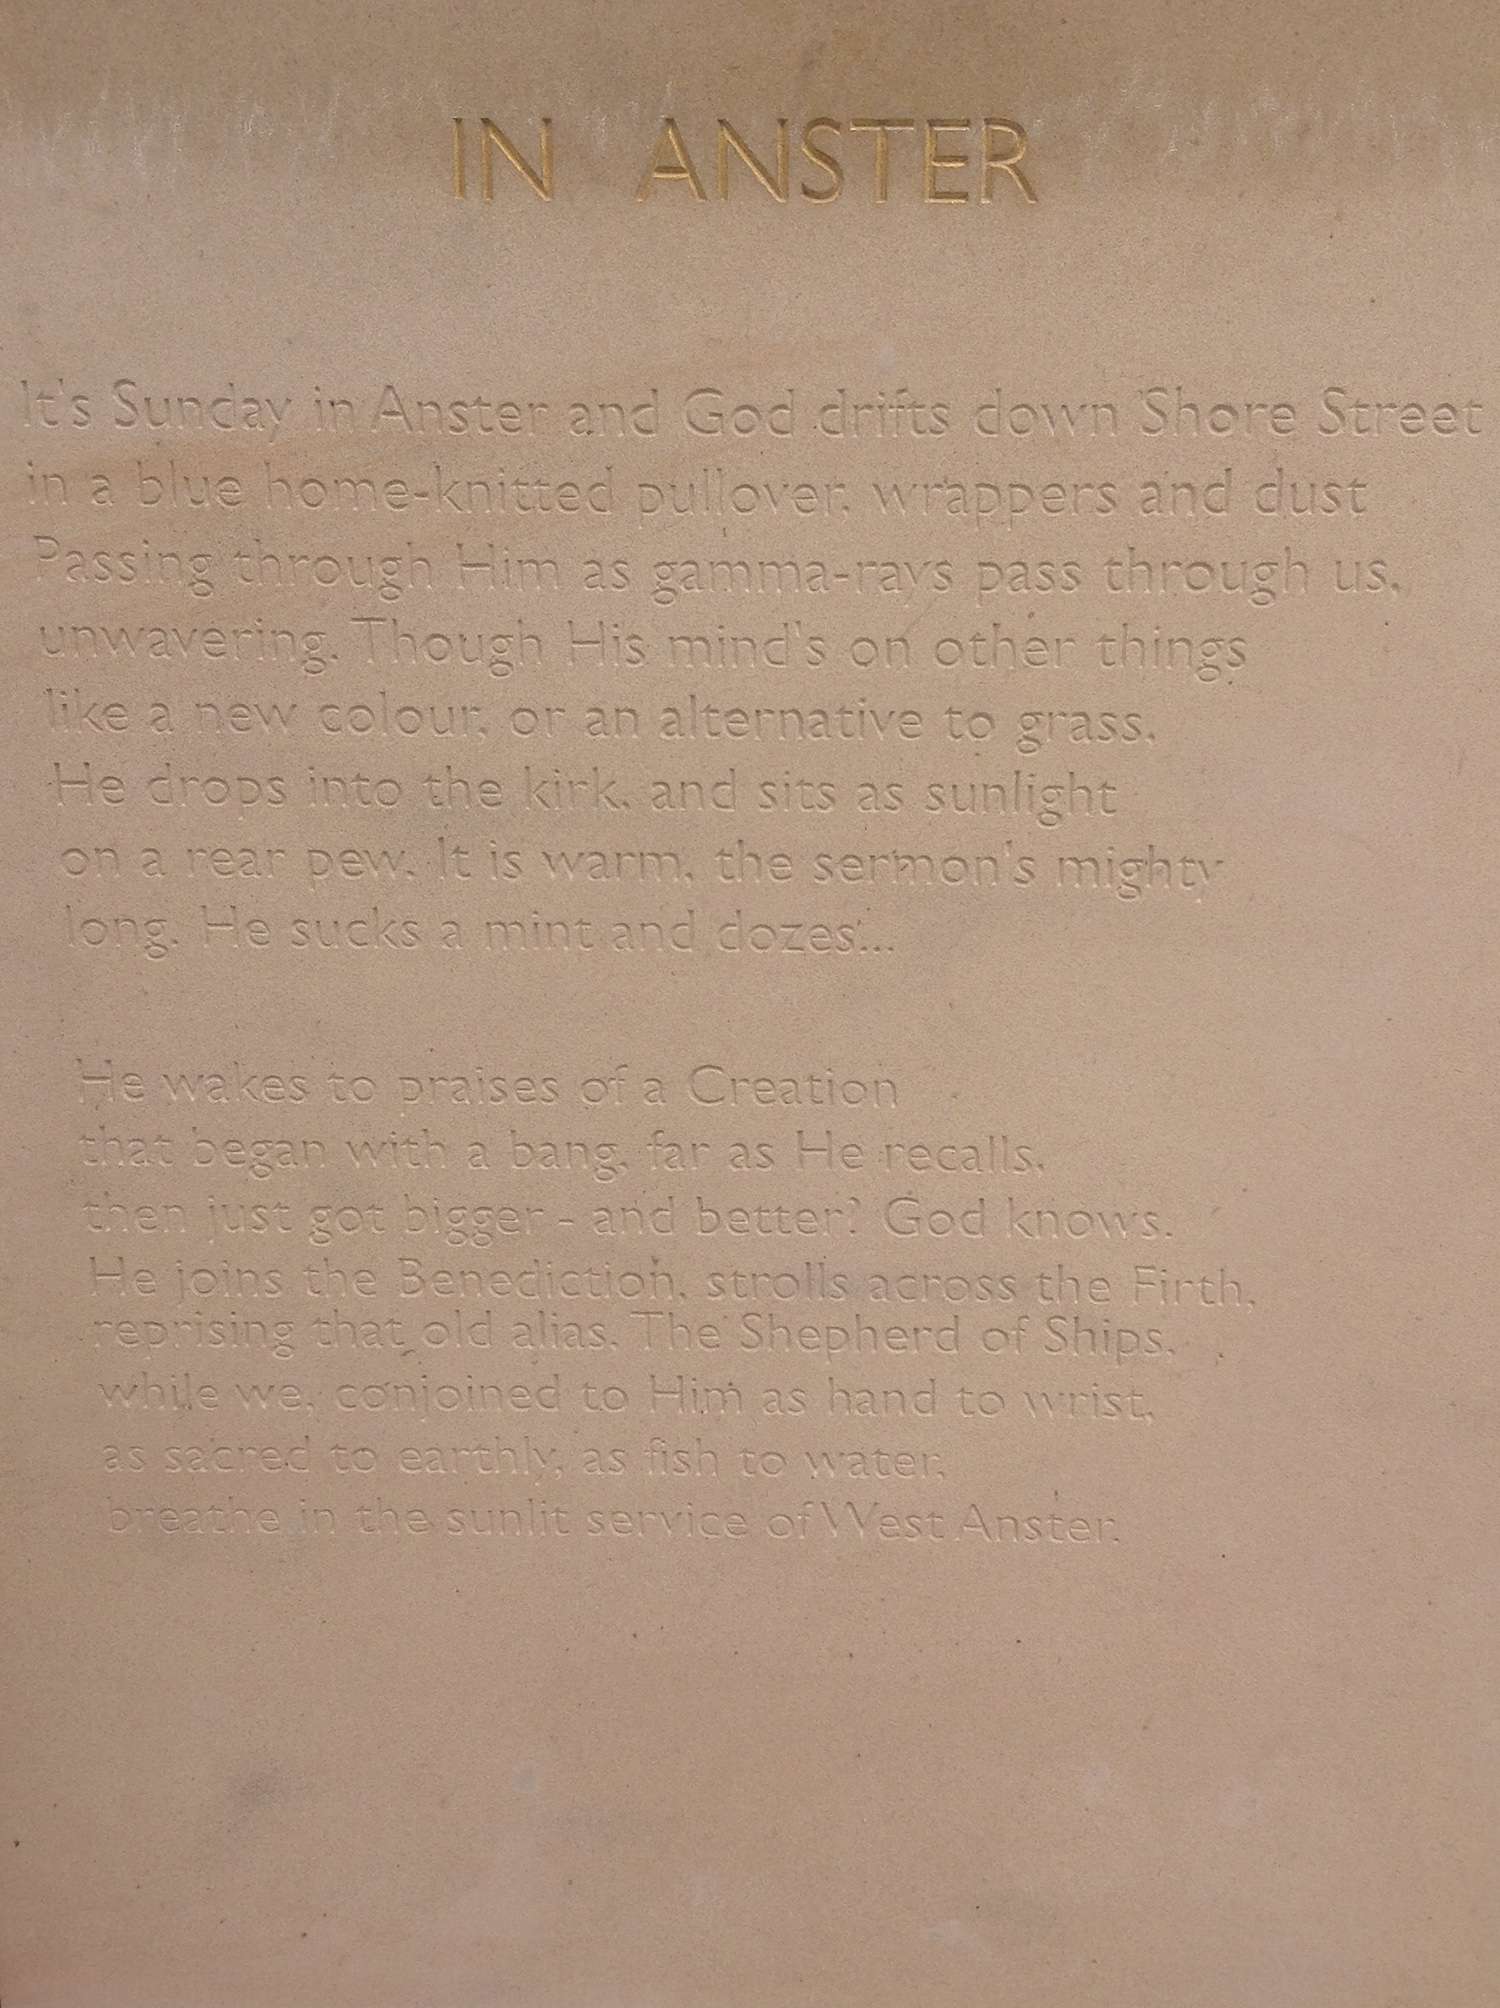 IN ANSTER
It's Sunday in Anster and God drifts down Shore Street
in a blue home-knitted pullover, wrappers and dust
Passing through Him as gamma-rays pass through us,
unwavering. Though His mind's on other things
like a new colour, or an alternative to grass,
He drops into the kirk, and sits as sunlight
on a rear pew. It is warm, the sermon's mighty
long. He sucks a mint and dozes...
He wakes to praises of a Creation
that began with a bang, far as He recalls,
then just got bigger - and better? God knows.
He joins the Benediction, strolls across the Firth,
reprising that old alias, The Shepherd of Ships,
while we, conjoined to Him as hand to wrist,
as sacred to earthly, as fish to water,
breathe in the sunlit service of West Anster.